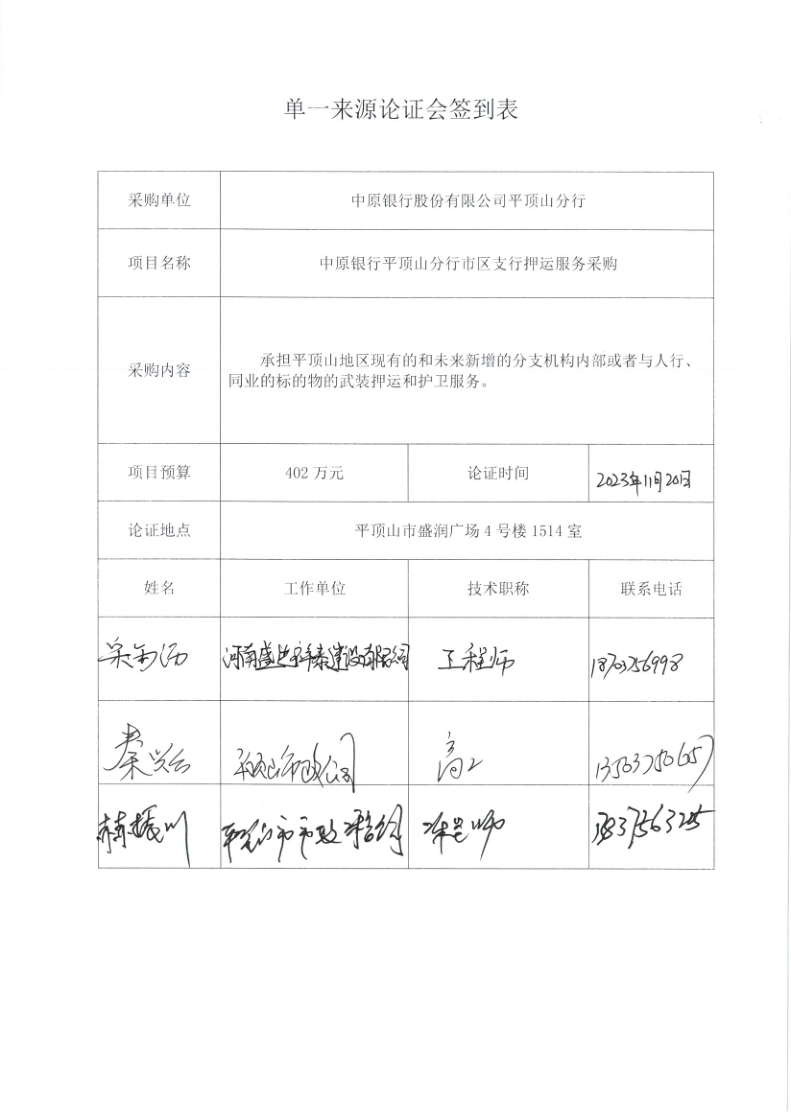 单一来源论证会签到表
采购单位 中原银行股份有限公司平顶山分行
项目名称 中原银行平顶山分行市区支行押运服务采购
采购内容 承担平顶山地区现有的和未来新增的分支机构内部或者与人行、
同业的标的物的武装押运和护卫服务。
项目预算 402 万元 论证时间 2023年11月20日
论证地点 平顶山市盛润广场 4 号楼 1514 室
姓名 工作单位 技术职称 联系电话
工程师 18703756998
秦兴云 高工
赫振川